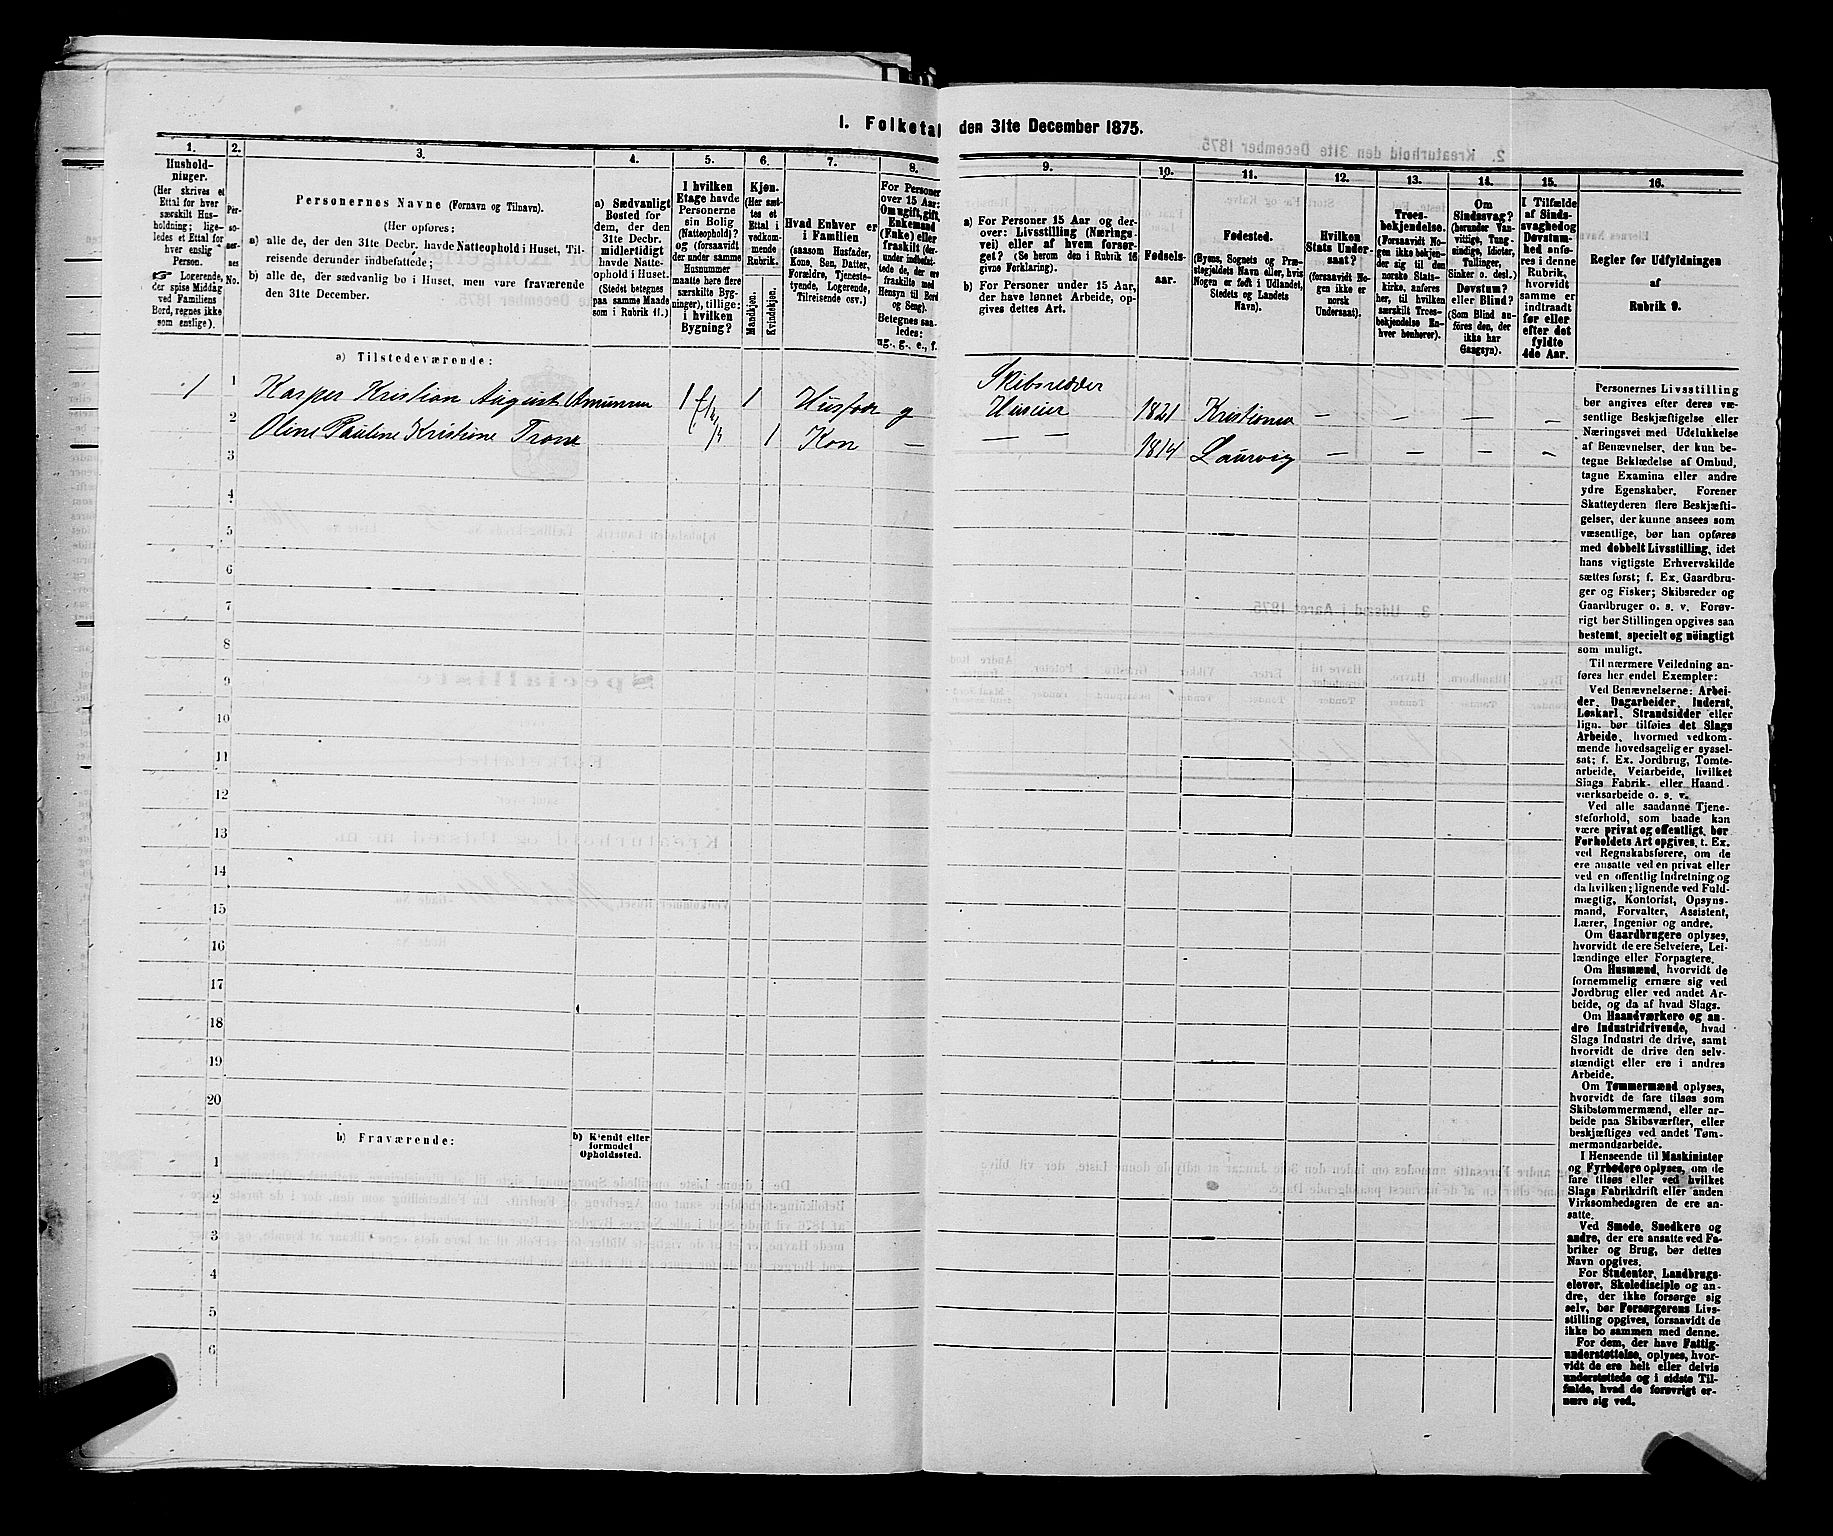 1. Folketal den 31te December 1875.
1.
Hushold-
ninger.
(Her skrives et
Ettal for hver
særskilt Hus-
holdning; lige-
ledes et Ettal for
hver enslig
Person.
☞ Logerende,
der spise Middag
ved Familiens
Bord, regnes ikke
som enslige).
2.
Per-
so-
ner-
nes
No.
3.
Personernes Navne (Fornavn og Tilnavn).
(Her opføres:
a) alle de, der den 31te Decbr. havde Natteophold i Huset, Til-
reisende derunder indbefattede;
b) alle de, der sædvanlig bo i Huset, men vare fraværende
den 31te December.
4.
a) Sædvanligt
Bosted for
dem, der den
31te Decbr.
midlertidigt
havde Natte-
ophold i Huset.
(Stedet betegnes
paa samme Maade
som i Rubrik 11.)
5.
I hvilken
Etage havde
Personerne
sin Bolig
(Natteophold)?
og (forsaavidt
der under samme
Husnummer
maatte høre flere
særskilte Byg-
ninger), tillige:
i hvilken
Bygning?
6.
Kjøn.
(Her sæt-
tes et
Ettal i
vedkom-
mende
Rubrik.
Mandkjøn.
Kvindekjøn.
7.
Hvad Enhver er
i Familien
(saasom Husfader,
Kone, Søn, Datter,
Forældre, Tjeneste-
tyende, Logerende,
Tilreisende osv.)
8.
For Personer
over 15 Aar:
Om ugift, gift,
Enkemand
(Enke) eller
fraskilt (der-
under indbefat-
tede de, der ere
fraskilte med
Hensyn til Bord
og Seng).
Betegnes saa-
ledes:
ug., g., e., f.
9.
a) For Personer 15 Aar og der-
over: Livsstilling (Nærings-
vei) eller af hvem forsør-
get? (Se herom den i Rubrik 16
givne Forklaring).
b) For Personer under 15 Aar,
der have lønnet Arbeide, op-
gives dettes Art.
10.
Fødsels-
aar.
11.
Fødested.
(Byens, Sognets og Præ-
stegjeldets Navn eller, hvis
Nogen er født i Udlandet,
Stedets og Landets
Navn).
12.
Hvilken
Stats Under-
saat?
(forsaavidt No-
gen ikke er
norsk
Undersaat).
13.
Troes-
bekjendelse.
(Forsaavidt No-
gen ikke bekjen-
der sig til den
norske Stats-
kirke, anføres
her, til hvilken
særskilt Troes-
bekjendelse En-
hver henhører).
14.
Om
Sindssvag?
(herunder Van-
vittige, Tung-
sindige, Idioter,
Tullinger,
Sinker o. desl.)
Døvstum?
eller Blind?
(Som Blind an-
føres den, der
ikke har
Gangsyn).
15.
I Tilfælde
af Sinds-
svaghed og
Døvstum-
hed anfø-
res i denne
Rubrik,
hvorvidt
samme er
indtraadt
før eller
efter det
fyldte
4de Aar.
16.
Regler for Udfyldningen
af
Rubrik 9.
a) Tilstedeværende:
1 1 Kasper Kristian August Amunsen 1 1 Husfadr g Skibsredder
Huseier 1821 Kristiania — — — —
2 Oline Pauline Kristine Trone 1 Kon — — — 1814 Laurvig — — — —
3
4
5
6
7
8
9
10
11
12
13
14
15
16
17
18
19
20
b) Fraværende:
b) Kjendt eller
formodet
Opholdssted.
1
2
3
4
5
6
Personernes Livsstilling
bør angives efter deres væ-
sentlige Beskjæftigelse eller
Næringsvei med Udelukkelse
af Benævnelser, der kun be-
tegne Beklædelse af Ombud,
tagne Examina eller andre
ydre Egenskaber. Forener
Skatteyderen flere Beskjæfti-
gelser, der kunne ansees som
væsentlige, bør han opføres
med dobbelt Livsstilling, idet
hans vigtigste Erhvervskilde
sættes først; f. Ex. Gaardbru-
ger og Fisker; Skibsreder og
Gaardbruger o. s. v. Forøv-
rigt bør Stillingen opgives saa
bestemt, specielt og nöiagtigt
som muligt.
Til nærmere Veiledning an-
føres her endel Exempler:
Ved Benævnelserne: Arbei-
der, Dagarbeider, Inderst,
Løskarl, Strandsidder eller
lign. bør tilføies det Slags
Arbeide, hvormed vedkom-
mende hovedsagelig er syssel-
sat; f. Ex. Jordbrug, Tomte-
arbeide, Veiarbeide, hvilket
Slags Fabrik- eller Haand
værksarbeide o. s. v.
Ved alle saadanne Tjene-
steforhold, som baade kan
være privat og offentligt, bør
Forholdets Art opgives, t. Ex.
ved Regnskabsførere, om de
ere ansatte ved en privat eller
ved en offentlig Indretning og
da hvilken; lignende ved Fuld-
mægtig, Kontorist, Opsyns-
mand, Forvalter, Assistent,
Lærer, Ingeniør og andre.
Om Gaardbrugere oplyses,
hvorvidt de ere Selveiere, Lei-
lændinge eller Forpagtere.
Om Husmænd, hvorvidt de
fornemmelig ernære sig ved
Jordbrug eller ved andet Ar-
beide, og da af hvad Slags.
Om Haandværkere og an-
dre Industridrivende, hvad
Slags Industri de drive, samt
hvorvidt de drive den selv-
stændigt eller ere i andres
Arbeide.
Om Tømmermænd oplyses,
hvorvidt de fare tilsøs som
Skibstømmermænd, eller ar-
beide paa Skibsværfter, eller
beskjæftiges ved andet Tøm-
mermandsarbeide.
I Henseende til Maskinister
og Fyrbødere oplyses, om de
fare tilsøs eller ved hvilket
Slags Fabrikdrift eller anden
Virksomhedsgren de ere an-
satte.
Ved Smede, Snedkere og
andre, der ere ansatte ved Fa-
briker og Brug, bør dettes
Navn opgives.
For Studenter, Landbrugs-
elever, Skoledisciple og an-
dre, der ikke forsørge sig
selv, bør Forsørgerens Livs-
stilling opgives, forsaavidt de
ikke bo sammen med denne.
For dem, der have Fattig-
understøttelse, oplyses, hvor-
vidt de ere helt eller delvis
understøttede og i sidste Til-
fælde, hvad de forøvrigt er-
nære sig ved.